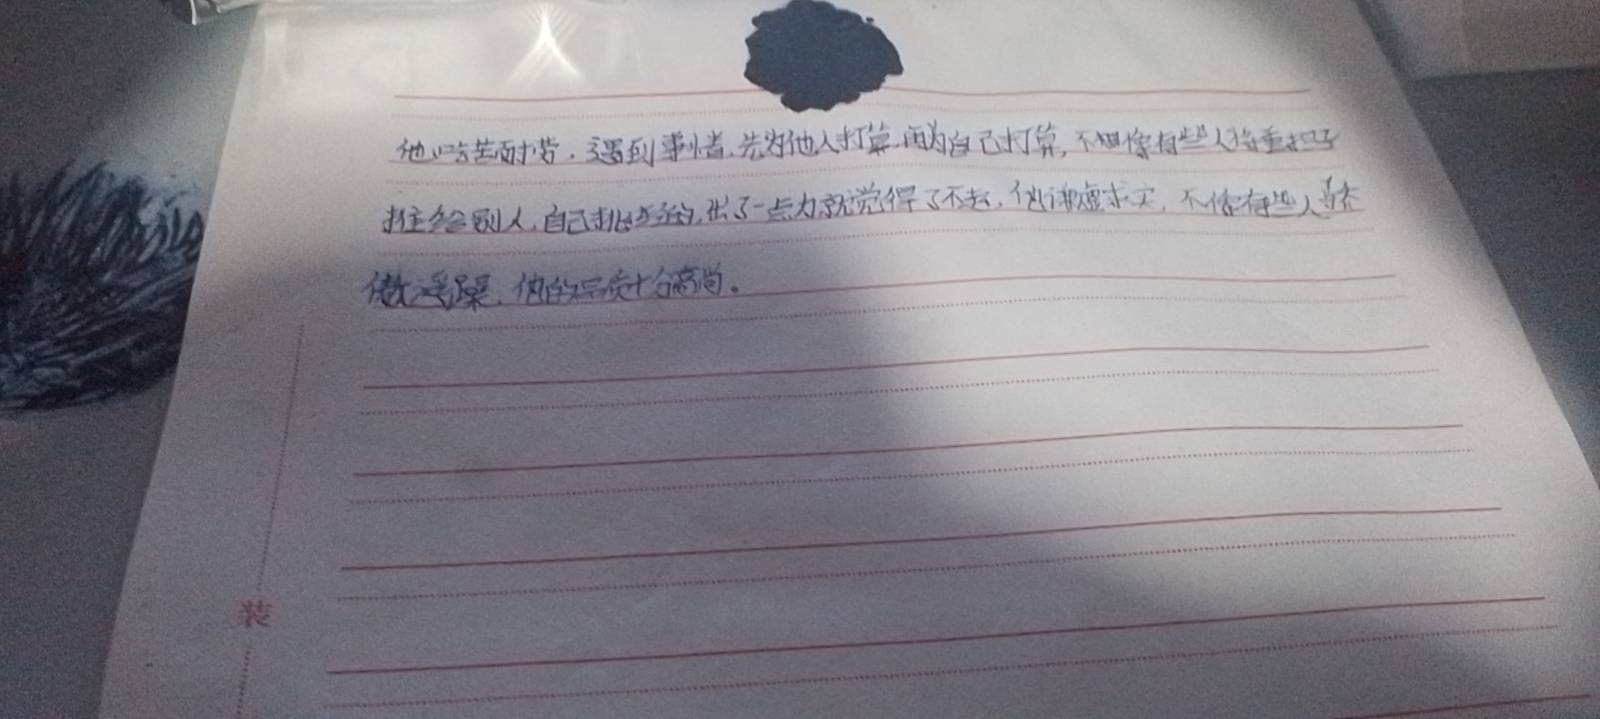 他吃苦耐劳,遇到事情,先为他人打算,再为自己打算,不想像有些人将重担子
推给别人,自己挑轻的,出了一点力就觉得了不起,他谦虚求实,不像有些人骄
傲浮躁,他的品质十分高尚。
装